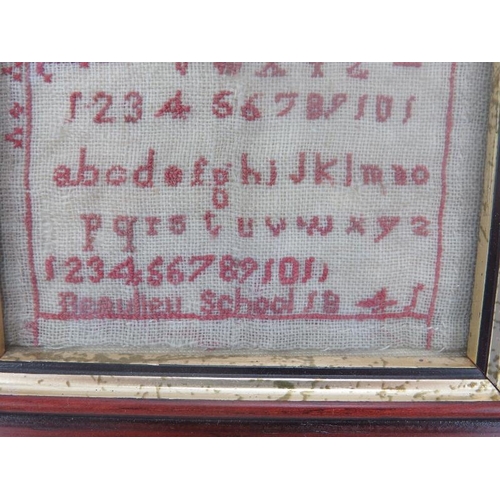 V W X Y Z
1234 56789101
abcdefghijklmno
pqrstuvwxyz
1234567891011
Beaulieu School 18 41